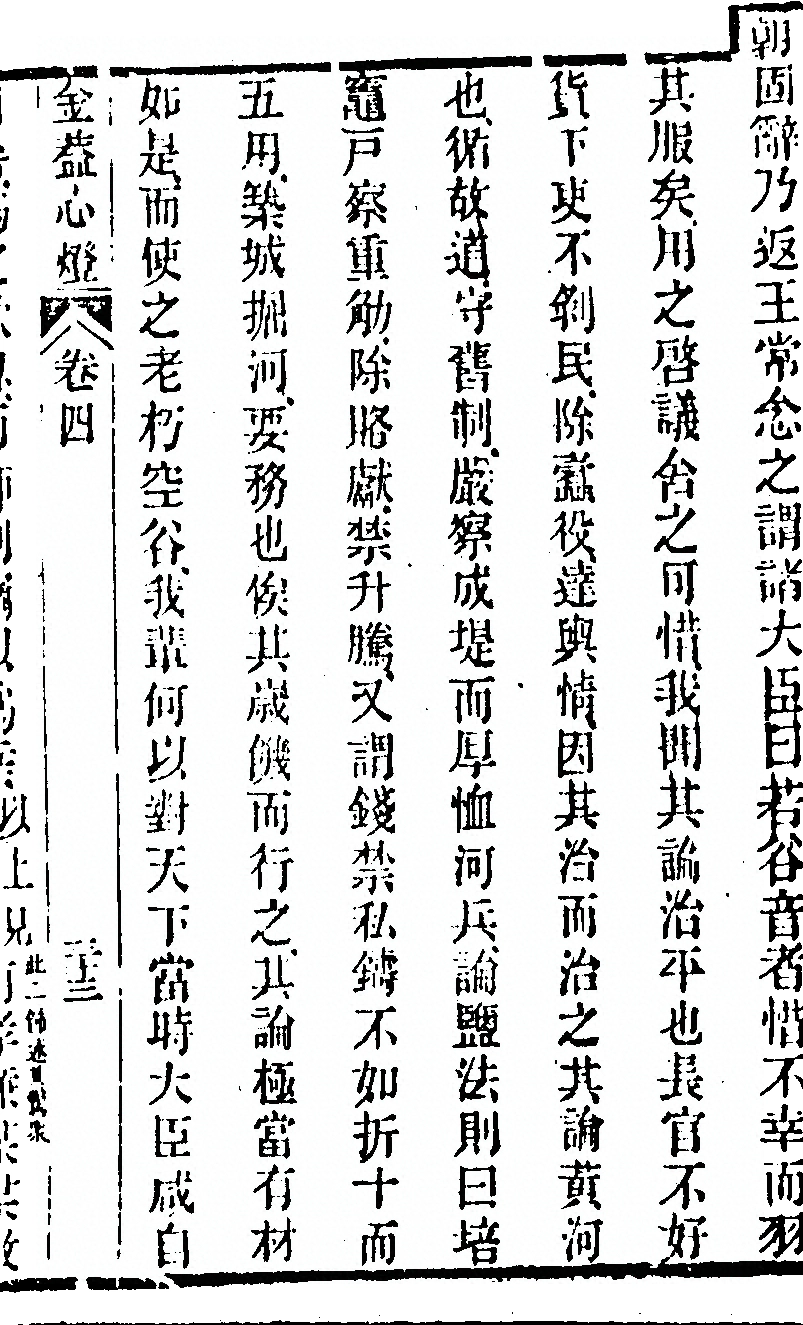 朝固辭乃返王常念之謂諸大臣曰若谷音者惜不幸而羽
其服矣用之啓議舍之可惜我聞其論治平也長官不好
貨下吏不剝民除蠹役達輿情因其治而治之其論黃河
也循故道守舊制嚴察成堤而厚恤河兵論鹽法則曰培
竈戸察重觔除賂獻禁升騰又謂錢禁私鑄不如折十而
五用築城掘河要務也俟其歲饑而行之其論極當有材
如是而使之老朽空谷我輩何以對天下當時大臣咸自
金葢心燈 卷四 三十三